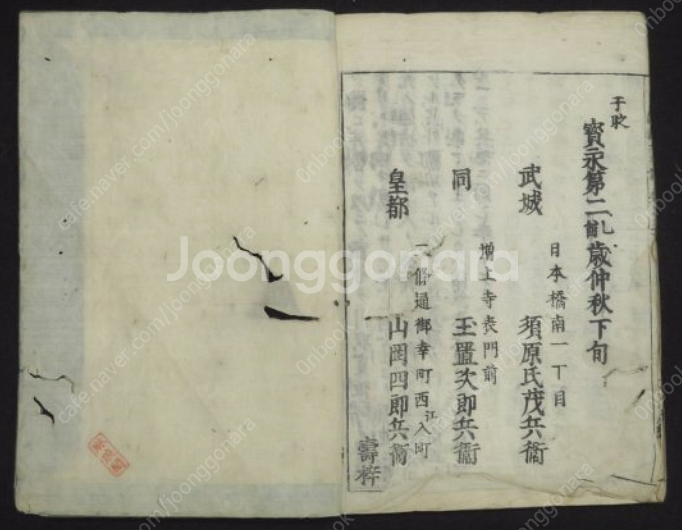 于时
寳永第二乙酉歳仲秋下旬
日本橋南一丁目
武城 須原氏茂兵衞
増上寺表門前
同 玉置次郎兵衞
二條通御幸町西江入町
皇都 山岡四郎兵衞
壽梓
Joonggonara
cafe.naver.com/joonggonara
0nbook